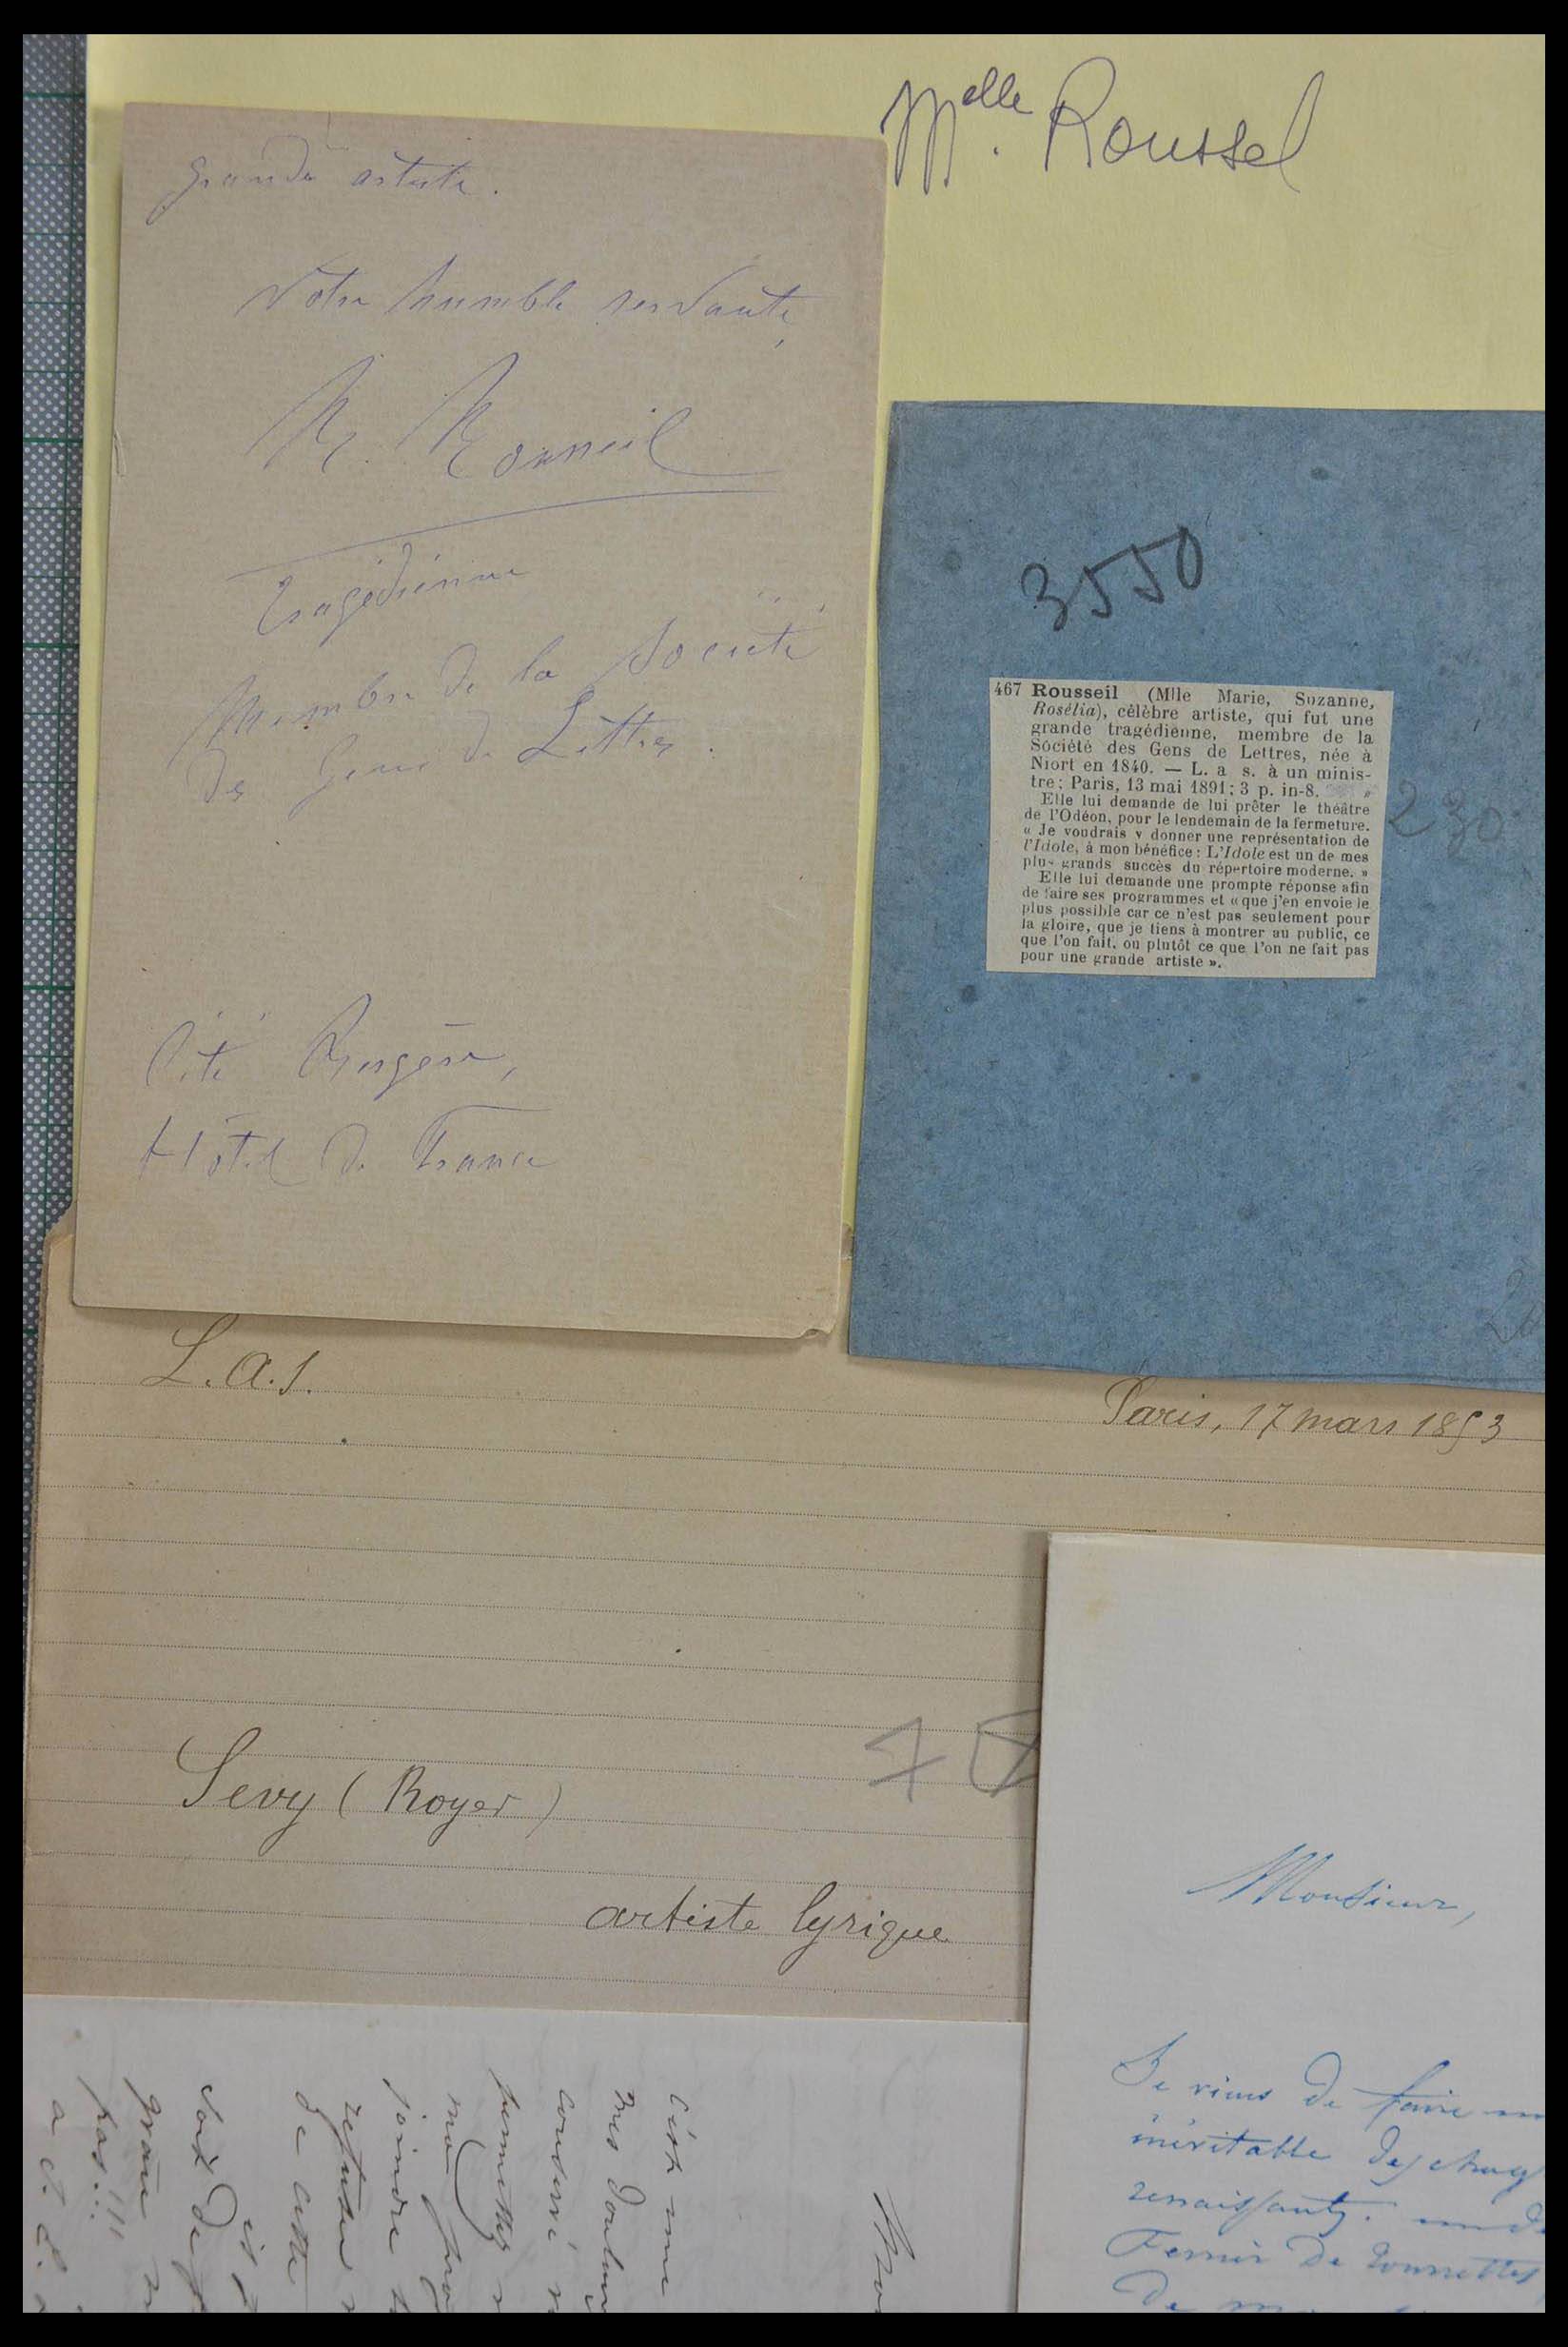 Melle Roussel
grande artiste.
Votre humble servante,
R. Rousseil
Tragédienne
Membre de la Société
des Gens de Lettres.
Cité Bergère,
Hôtel de France
3550
467 Rousseil (Mlle Marie, Suzanne,
Rosélia), célèbre artiste, qui fut une
grande tragédienne, membre de la
Société des Gens de Lettres, née à
Niort en 1840. — L. a s. à un minis-
tre; Paris, 13 mai 1891; 3 p. in-8. »
Elle lui demande de lui prêter le théâtre
de l'Odéon, pour le lendemain de la fermeture.
« Je voudrais y donner une représentation de
l'Idole, à mon bénéfice : L'Idole est un de mes
plus grands succès du répertoire moderne. »
Elle lui demande une prompte réponse afin
de faire ses programmes et « que j'en envoie le
plus possible car ce n'est pas seulement pour
la gloire, que je tiens à montrer au public, ce
que l'on fait, ou plutôt ce que l'on ne fait pas
pour une grande artiste ».
230
L.a.s.
Paris, 17 mars 1853
Sevy (Royer)
artiste lyrique
Monsieur,
Je viens de faire
inévitable des
renaissants.
Fermier de
De
c'est une
mes
permettez
joindre
refuser
de cette
pas...!!!